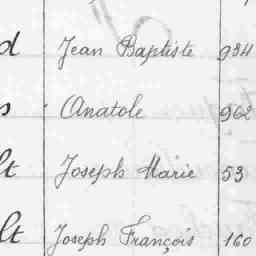 d Jean Baptiste 934
s Anatole 962
lt Joseph Marie 53
lt Joseph François 160